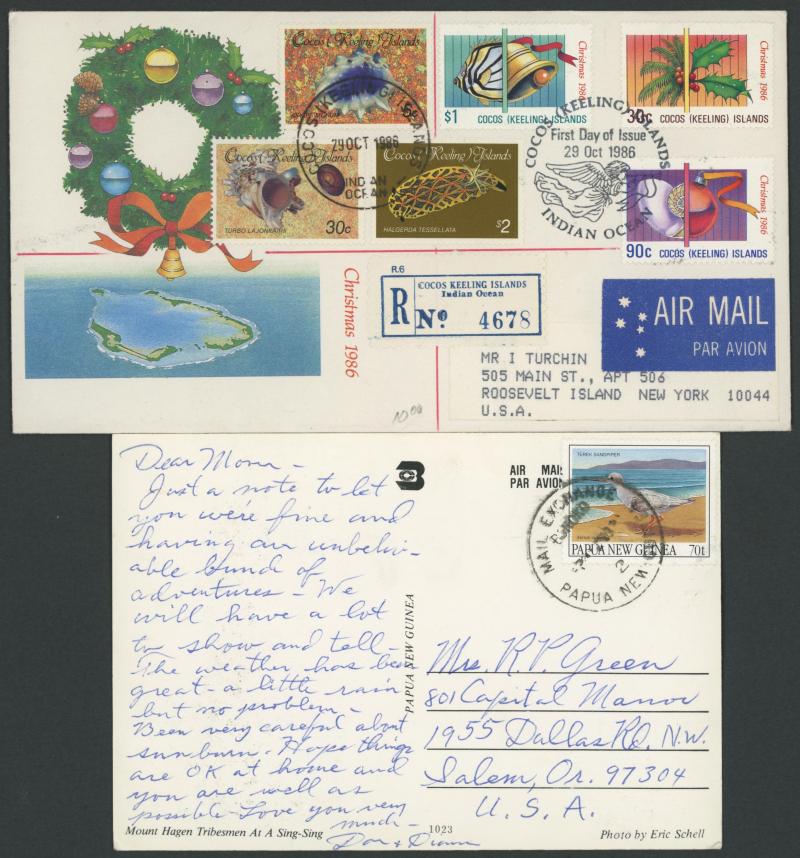 Cocos (Keeling) Islands
COCOS (KEELING) ISLANDS
29 OCT 1986
INDIAN
OCEAN
$1 COCOS (KEELING) ISLANDS
Christmas 1986
30c
COCOS (KEELING) ISLANDS
Christmas 1986
COCOS (KEELING) ISLANDS
First Day of Issue
29 Oct 1986
INDIAN OCEAN
Cocos (Keeling) Islands
TURBO LAJONKAIRII
30c
Cocos (Keeling) Islands
HALGERDA TESSELLATA
$2
Christmas 1986
90c COCOS (KEELING) ISLANDS
Christmas 1986
R.6
COCOS KEELING ISLANDS
Indian Ocean
R No. 4678
AIR MAIL
PAR AVION
MR I TURCHIN
505 MAIN ST., APT 506
ROOSEVELT ISLAND NEW YORK 10044
U.S.A.
10.00
Dear Mom -
Just a note to let
you we're fine and
having an unbeliv-
able bund of
adventures - We
will have a lot
to show and tell -
The weather has been
great - a little rain
but no problem -
Been very careful about
sunburn. Hope things
are OK at home and
you are well as
possible Love you very
much -
Don &
Mount Hagen Tribesmen At A Sing-Sing
PAPUA NEW GUINEA
1023
AIR MAIL
PAR AVION
TEREK SANDPIPER
PAPUA NEW GUINEA 70t
MAIL EXCHANGE
PAPUA NEW
Mrs. R.P. Green
801 Capital Manor
1955 Dallas Rd. N.W.
Salem, Or. 97304
U.S.A.
Photo by Eric Schell